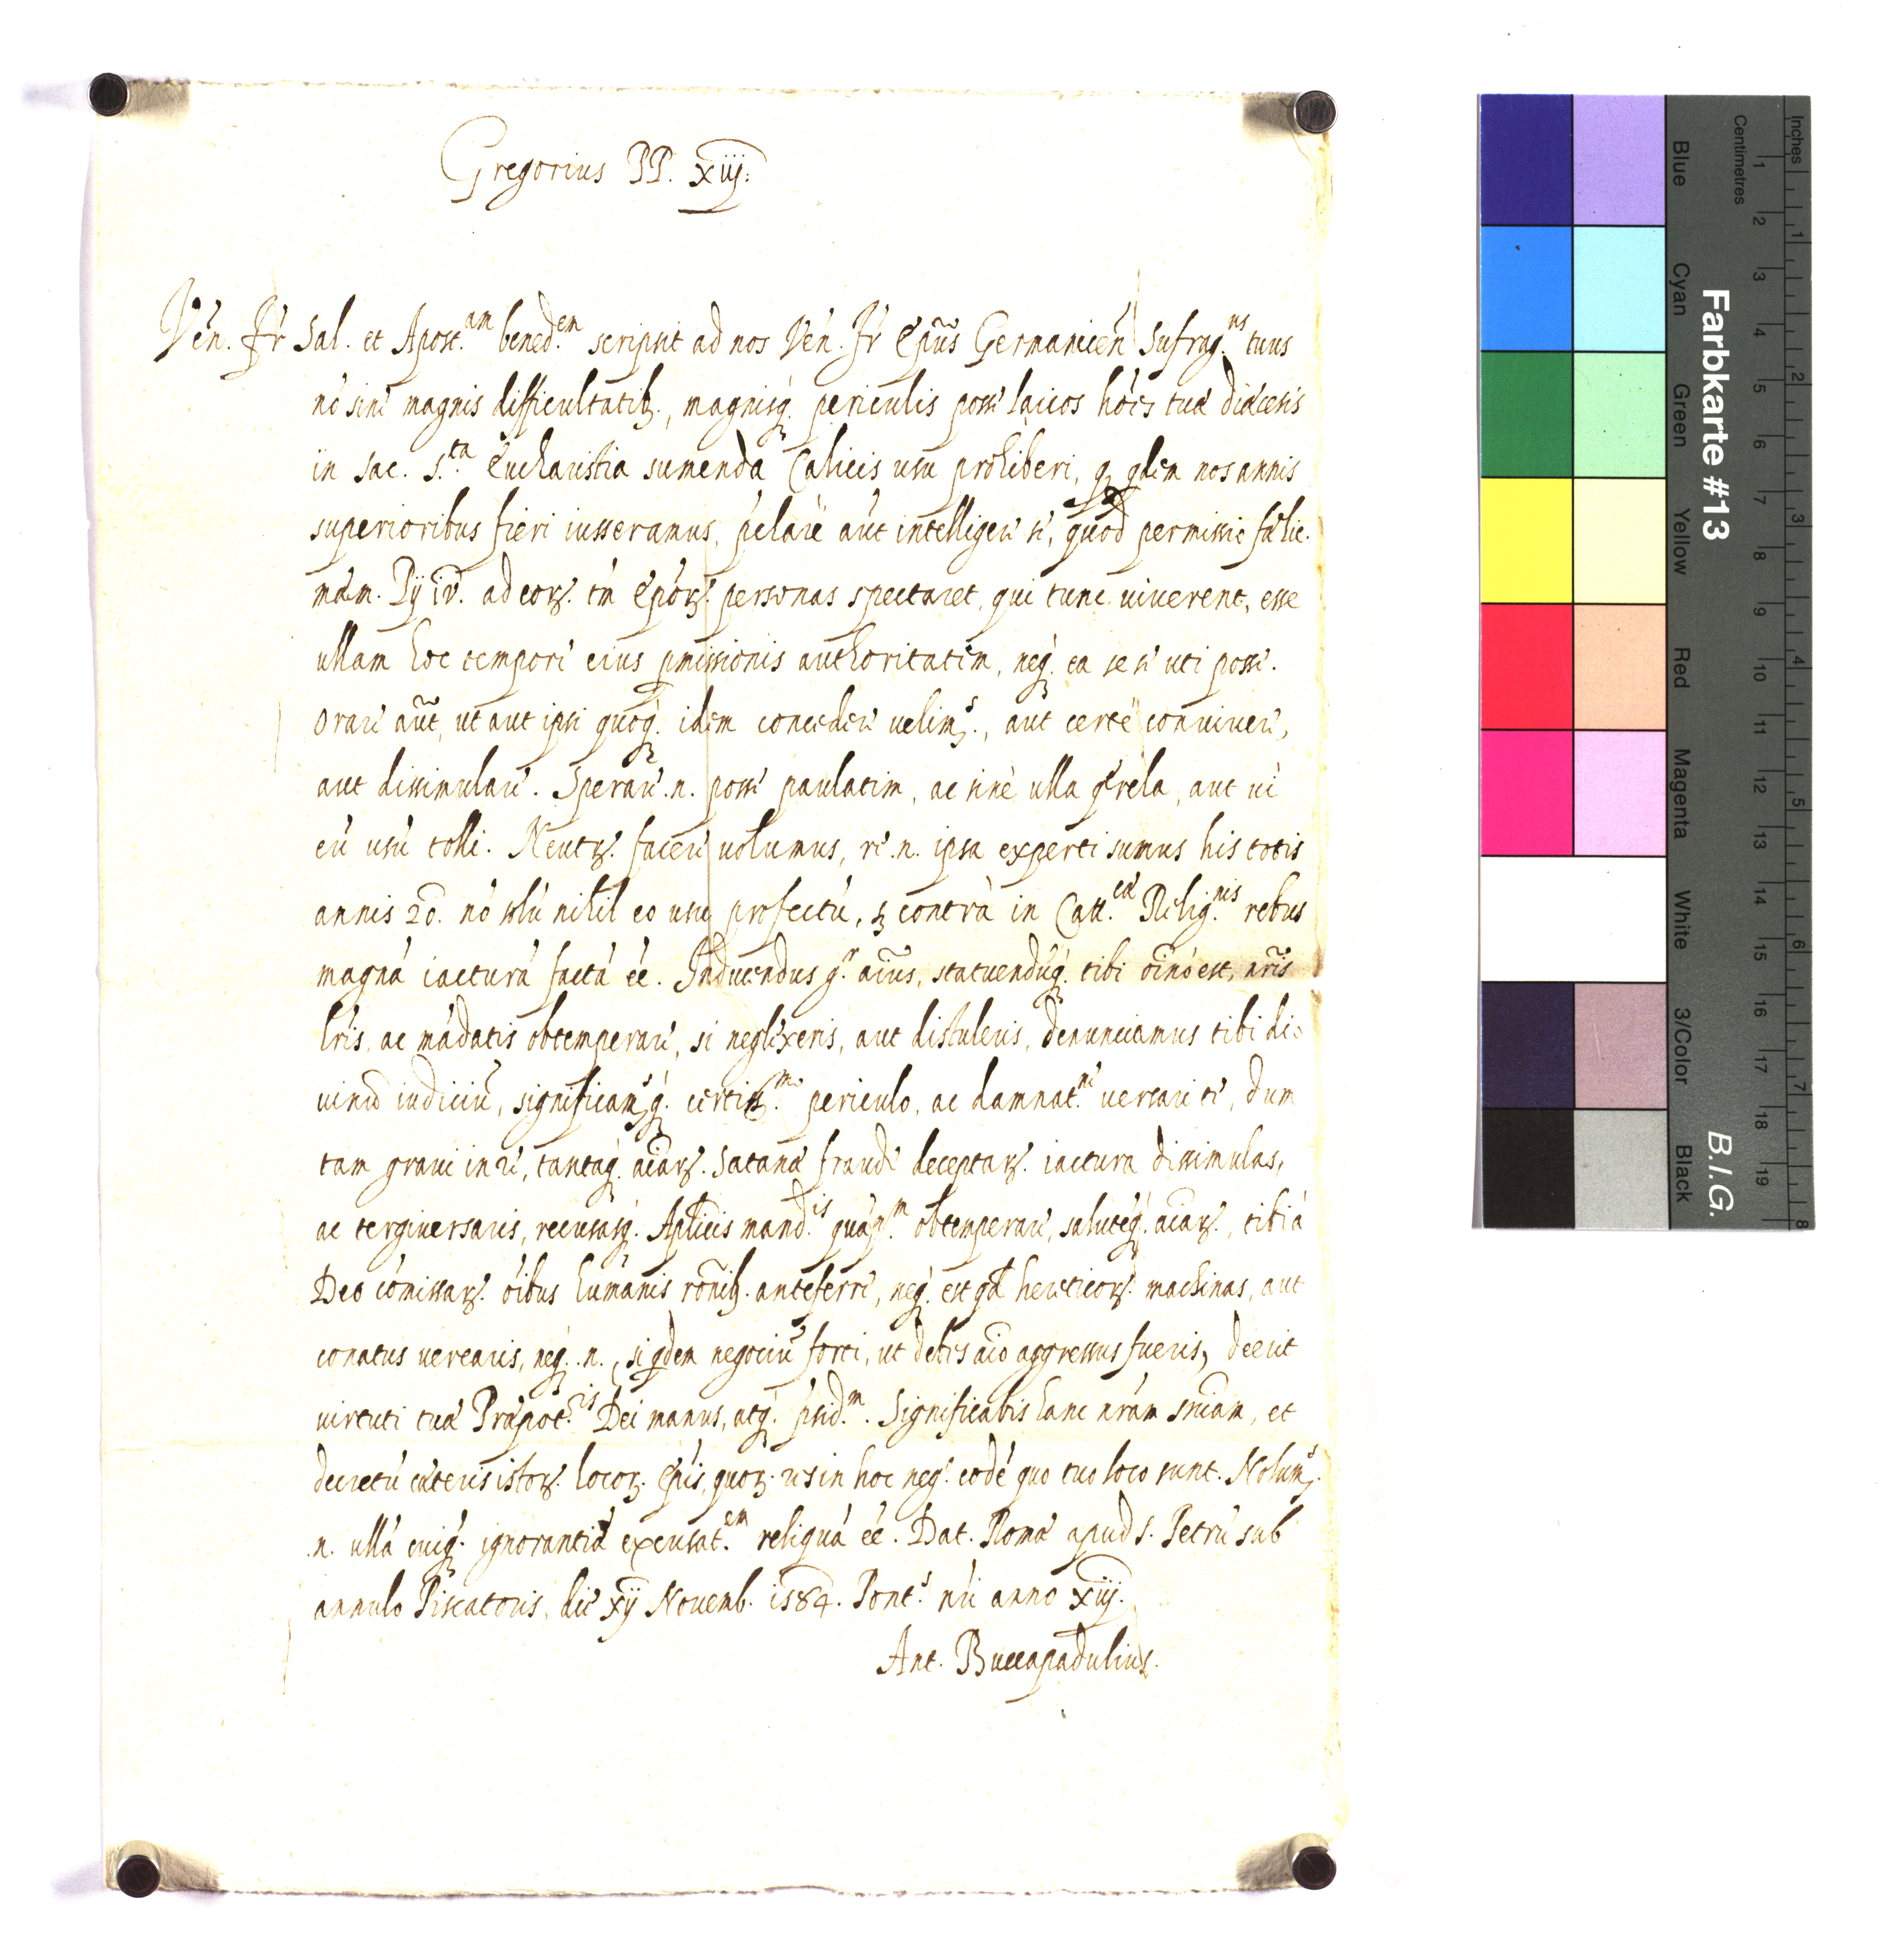 Gregorius PP. xiij.
Ven. Fr Sal. et Apost.am bened.em scripsit ad nos Ven. Fr Epũs Germanicen Sufrag.ns tuus
nó sine magnis difficultatib., magnisq. periculis posse laicos hoies tuæ diæcesis
in sac. s.ta Eucharistia sumenda Calicis usu prohiberi, q. qdem nos annis
superioribus fieri iusseramus, aut intelligere se, quod permissio fælic.
mem. Pij iv. ad eor. tm Epor. personas spectaret, qui tunc viverent, esse
ullam hoc tempore eius pmissionis authoritatem, neq. ea se uti posse.
Orare aũt, ut aut ipsi quoq. idem concedere uelim9., aut certè conniuere,
aut dissimulare. Sperare .n. posse paulatim, ac sine ulla qrela, aut ui
eú usú tolli. Neutr. facere uolumus, re .n. ipsa experti sumus his totis
annis 20. nó solú nihil eo usu profectú, s; contrà in Catt.cæ Relig.nis rebus
magná iacturá factá éé. Inducendus g.r aĩus, statuendúq. tibi oĩnó est, nr̃is
lr̃is, ac mádatis obtemperare, si neglixeris, aut distuleris, denunciamus tibi di=
uinú iudiciú, significam9q. certiss.mo periculo, ac damnat.ne uersari te, dum
tam graui in re, tantaq. aiar. Satanæ fraude deceptar. iactura dissimulas,
ac tergiuersaris, recusasq. Aplicis mand.is obtemperare, salutéq. aiar., tibi á
Deo cómissar. óibus humanis rõnib. anteferre, neq. est qd hereticor. machinas, aut
conatus uerearis, neq. .n., si qdem negociú forti, ut debes aĩo aggressus fueris, deerit
uirtuti tuæ Præpot.tis Dei manus, atq. psid.m. Significabis hanc nr̃am sñiam, et
decretú cæteris istor. locor. Epis, quor. res in hoc neg.o eodé quo tuo loco sunt. Nolum9.
.n. ullá cuiq. ignorantiæ excusat.em reliquá éé. Dat. Romæ apud S. Petrú sub
annulo Piscatoris, die xij Nouemb. 1584. Pont.s nr̃i anno xiij.
Ant. Buccapadulius.